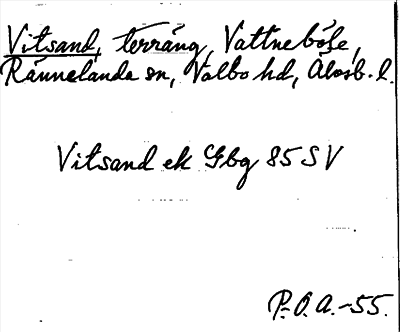 Vitsand, terräng, Vattneböle,
Rännelanda sn, Valbo hd, Älvsb. l.
Vitsand ek Gbg 85 SV
P.O.A.-55.